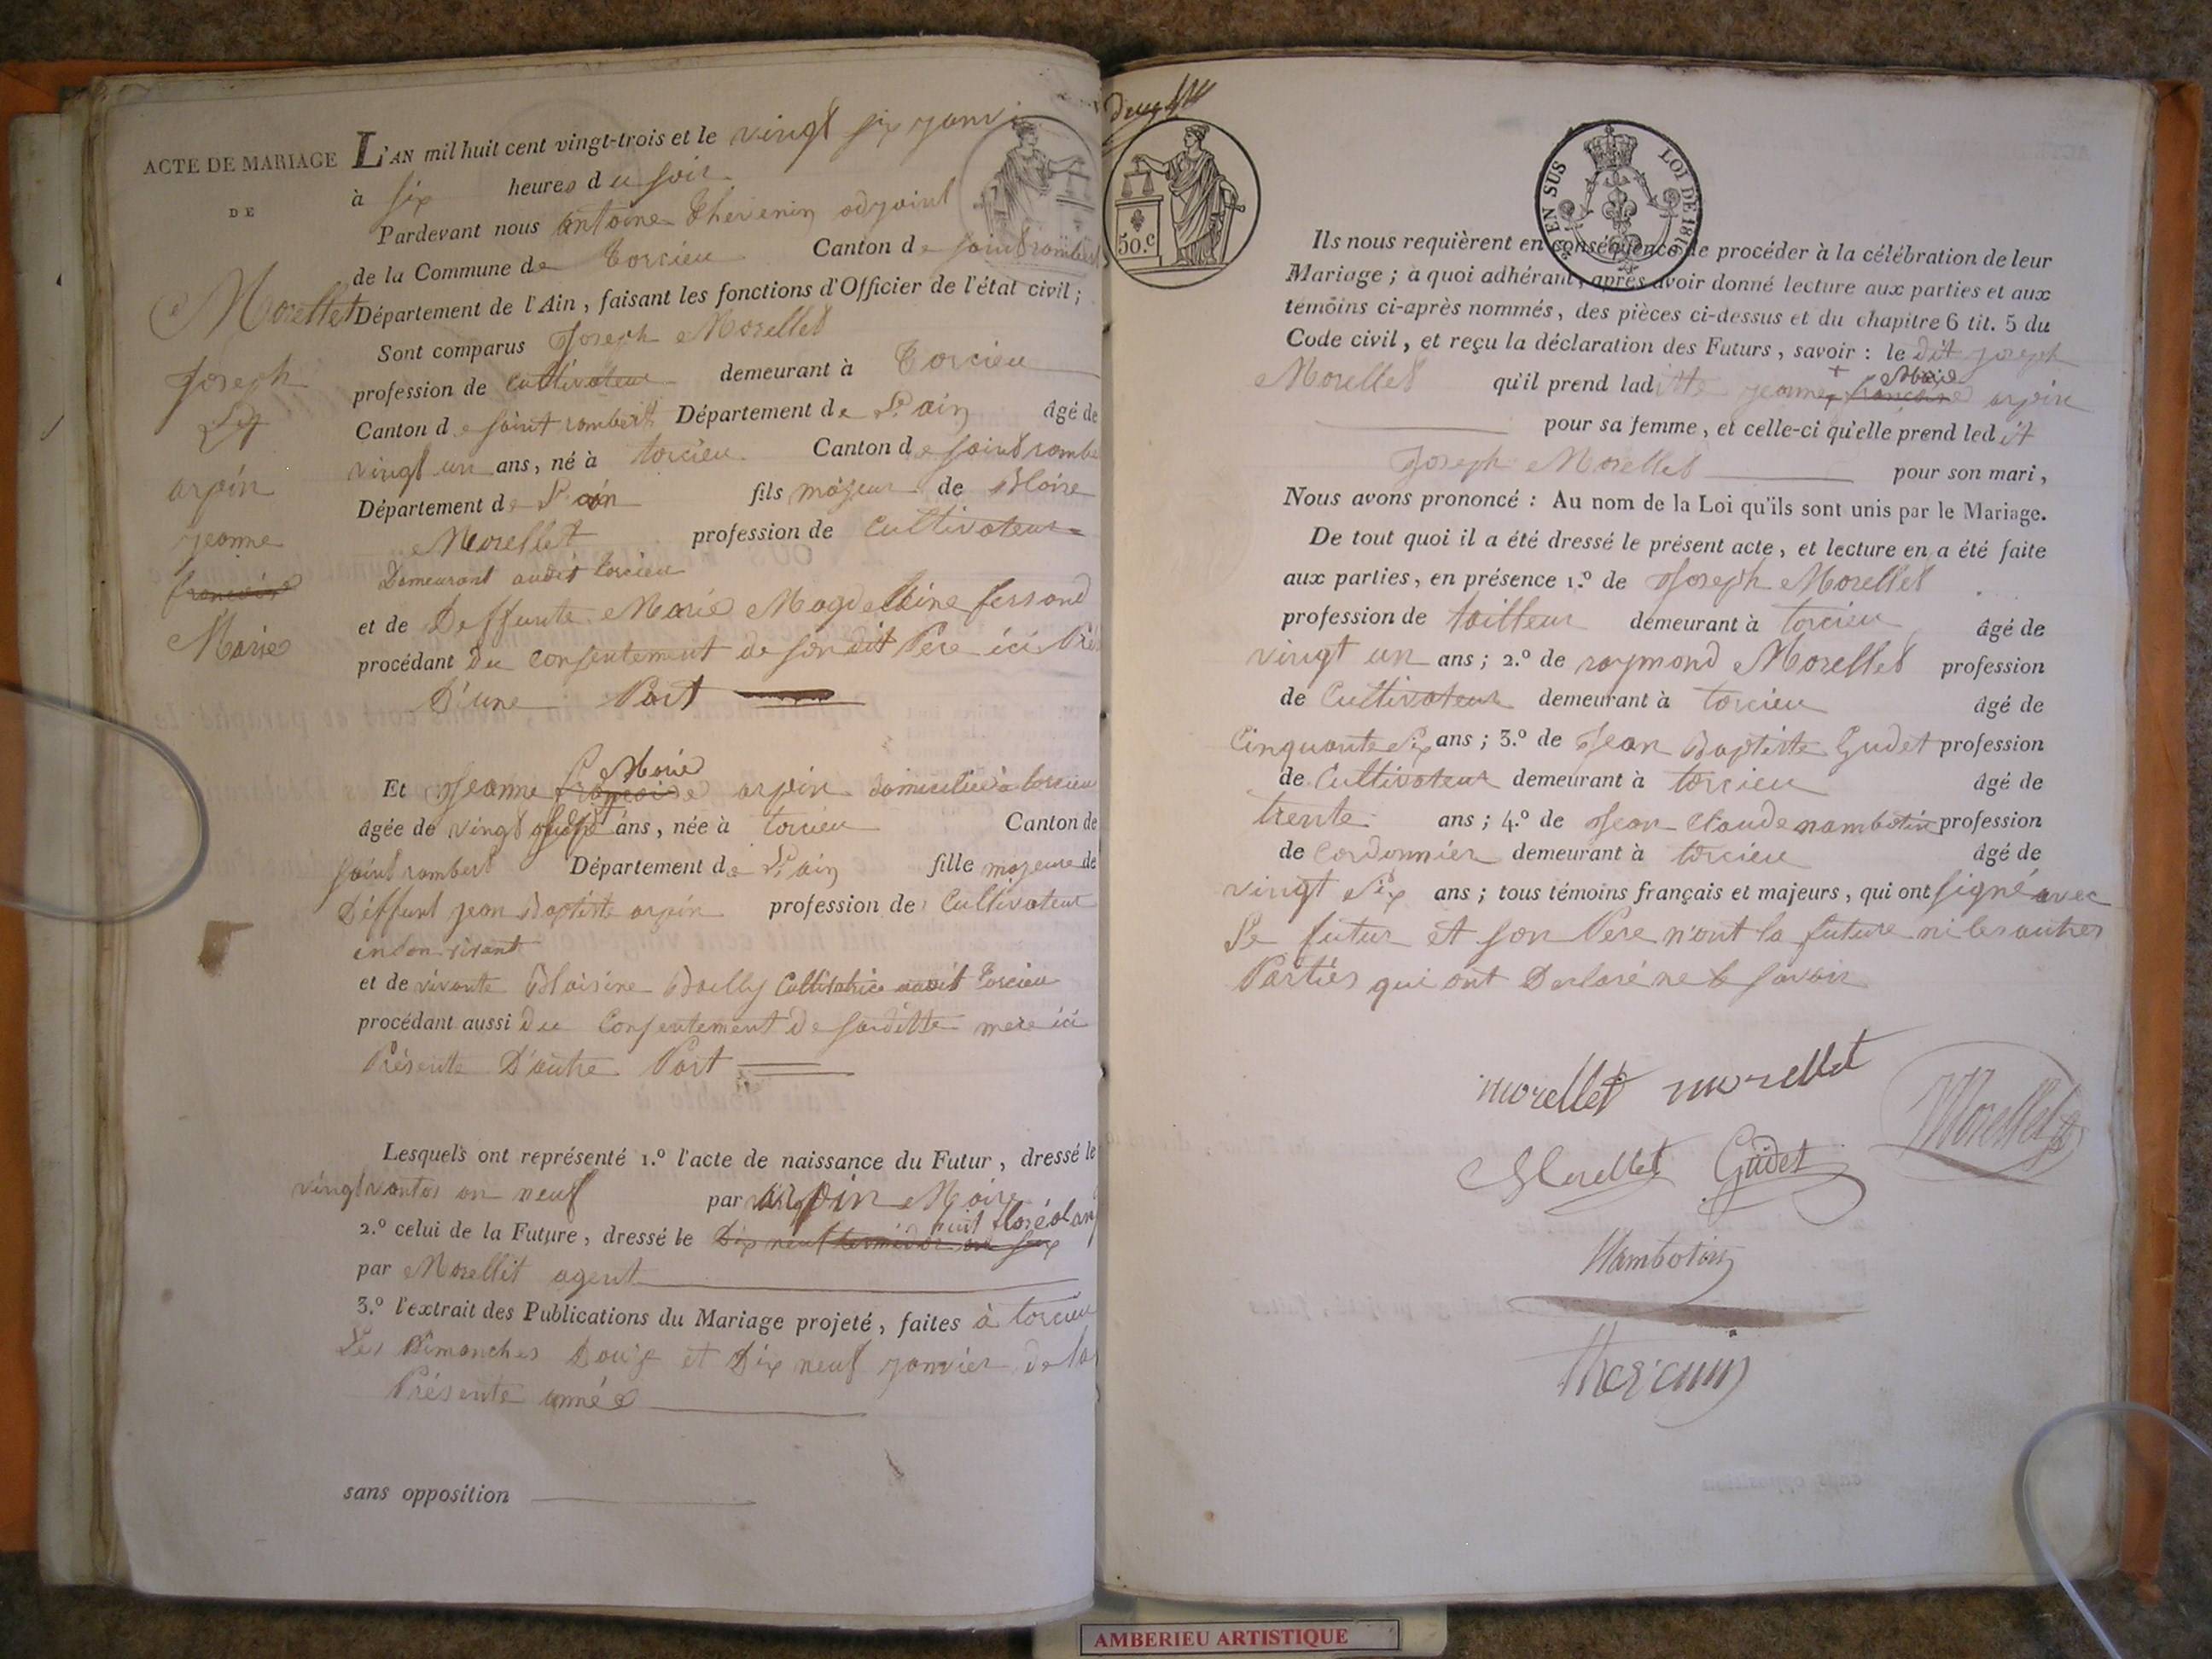 ACTE DE MARIAGE
DE
Morellet
Joseph
Et
arpin
jeanne
francoise
Marie
L'AN mil huit cent vingt-trois et le vingt six janvi
à six heures du soir
Pardevant nous antoine Thevenin adjoint
de la Commune de Torcieu Canton de saint rambert
Département de l'Ain, faisant les fonctions d'Officier de l'état civil;
Sont comparus Joseph Morellet
profession de Cultivateur demeurant à Torcieu
Canton de saint rambert Département de L'ain âgé de
vingt un ans, né à torcieu Canton de saint rambe
Département de L'ain fils majeur de Blaise
Morellet profession de Cultivateur
Demeurant audit torcieu
et de Deffunte Marie Magdelleine fersand
procédant Du Consentement de son dit Pere ici Prés
D'une Part
Et Jeanne francoise Marie arpin domiciliée à torcieu
âgée de vingt ans, née à torcieu Canton de
saint rambert Département de L'ain fille majeure de
Déffunt jean Baptiste arpin profession de Cultivateur
en son vivant
et de vivante Blaisine Bailly Cultivatrice audit Torcieu
procédant aussi du Consentement de saditte mere ici
Présente D'autre Part
Lesquels ont représenté 1.º l'acte de naissance du Futur, dressé le
vingt ventos an neuf par arpin Maire
2.º celui de la Future, dressé le Dix neuf termidor an six huit floréal an
par Morellet agent
3.º l'extrait des Publications du Mariage projeté, faites à torcieu
Les Dimanches Douze et Dix neuf janvier de la
Présente année
sans opposition
50.c
EN SUS LOI DE 1816
Ils nous requièrent en conséquence de procéder à la célébration de leur
Mariage; à quoi adhérant, après avoir donné lecture aux parties et aux
témoins ci-après nommés, des pièces ci-dessus et du chapitre 6 tit. 5 du
Code civil, et reçu la déclaration des Futurs, savoir: le dit joseph
Morellet qu'il prend laditte jeanne francoise Marie arpin
pour sa femme, et celle-ci qu'elle prend ledit
Joseph Morellet pour son mari,
Nous avons prononcé: Au nom de la Loi qu'ils sont unis par le Mariage.
De tout quoi il a été dressé le présent acte, et lecture en a été faite
aux parties, en présence 1.º de Joseph Morellet
profession de tailleur demeurant à torcieu âgé de
vingt un ans; 2.º de raymond Morellet profession
de Cultivateur demeurant à torcieu âgé de
Cinquante Six ans; 3.º de Jean Baptiste Gudet profession
de Cultivateur demeurant à torcieu âgé de
trente ans; 4.º de Jean Claude nambotin profession
de Cordonnier demeurant à torcieu âgé de
vingt Six ans; tous témoins français et majeurs, qui ont signé avec
Le futur et son Pere n'ont la future ni les autres
Parties qui ont Declaré ne le savoir
morellet morellet
Morellet
Morellet Gudet
Nambotin
thevenin
AMBERIEU ARTISTIQUE